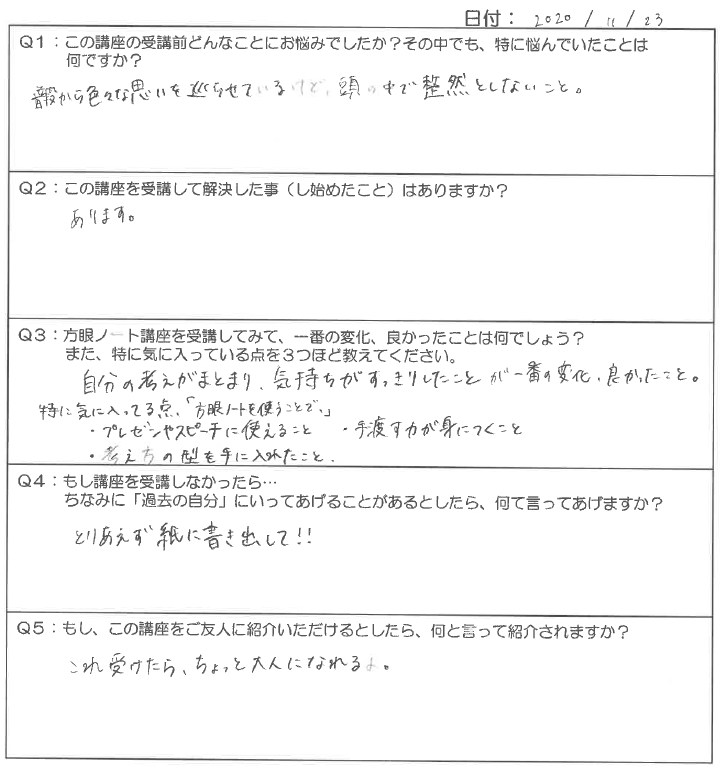 日付： 2020 / 11 / 23
Q1：この講座の受講前どんなことにお悩みでしたか？その中でも、特に悩んでいたことは
何ですか？
普段から色々な思いを巡らせているけど、頭の中で整然としないこと。
Q2：この講座を受講して解決した事（し始めたこと）はありますか？
あります。
Q3：方眼ノート講座を受講してみて、一番の変化、良かったことは何でしょう？
また、特に気に入っている点を３つほど教えてください。
自分の考えがまとまり、気持ちがすっきりしたことが一番の変化、良かったこと。
特に気に入ってる点、「方眼ノートを使うことで、」
・プレゼンやスピーチに使えること ・手渡す力が身につくこと
・考え方の型を手に入れたこと．
Q4：もし講座を受講しなかったら…
ちなみに「過去の自分」にいってあげることがあるとしたら、何て言ってあげますか？
とりあえず紙に書き出して!!
Q5：もし、この講座をご友人に紹介いただけるとしたら、何と言って紹介されますか？
これ受けたら、ちょっと大人になれるよ。